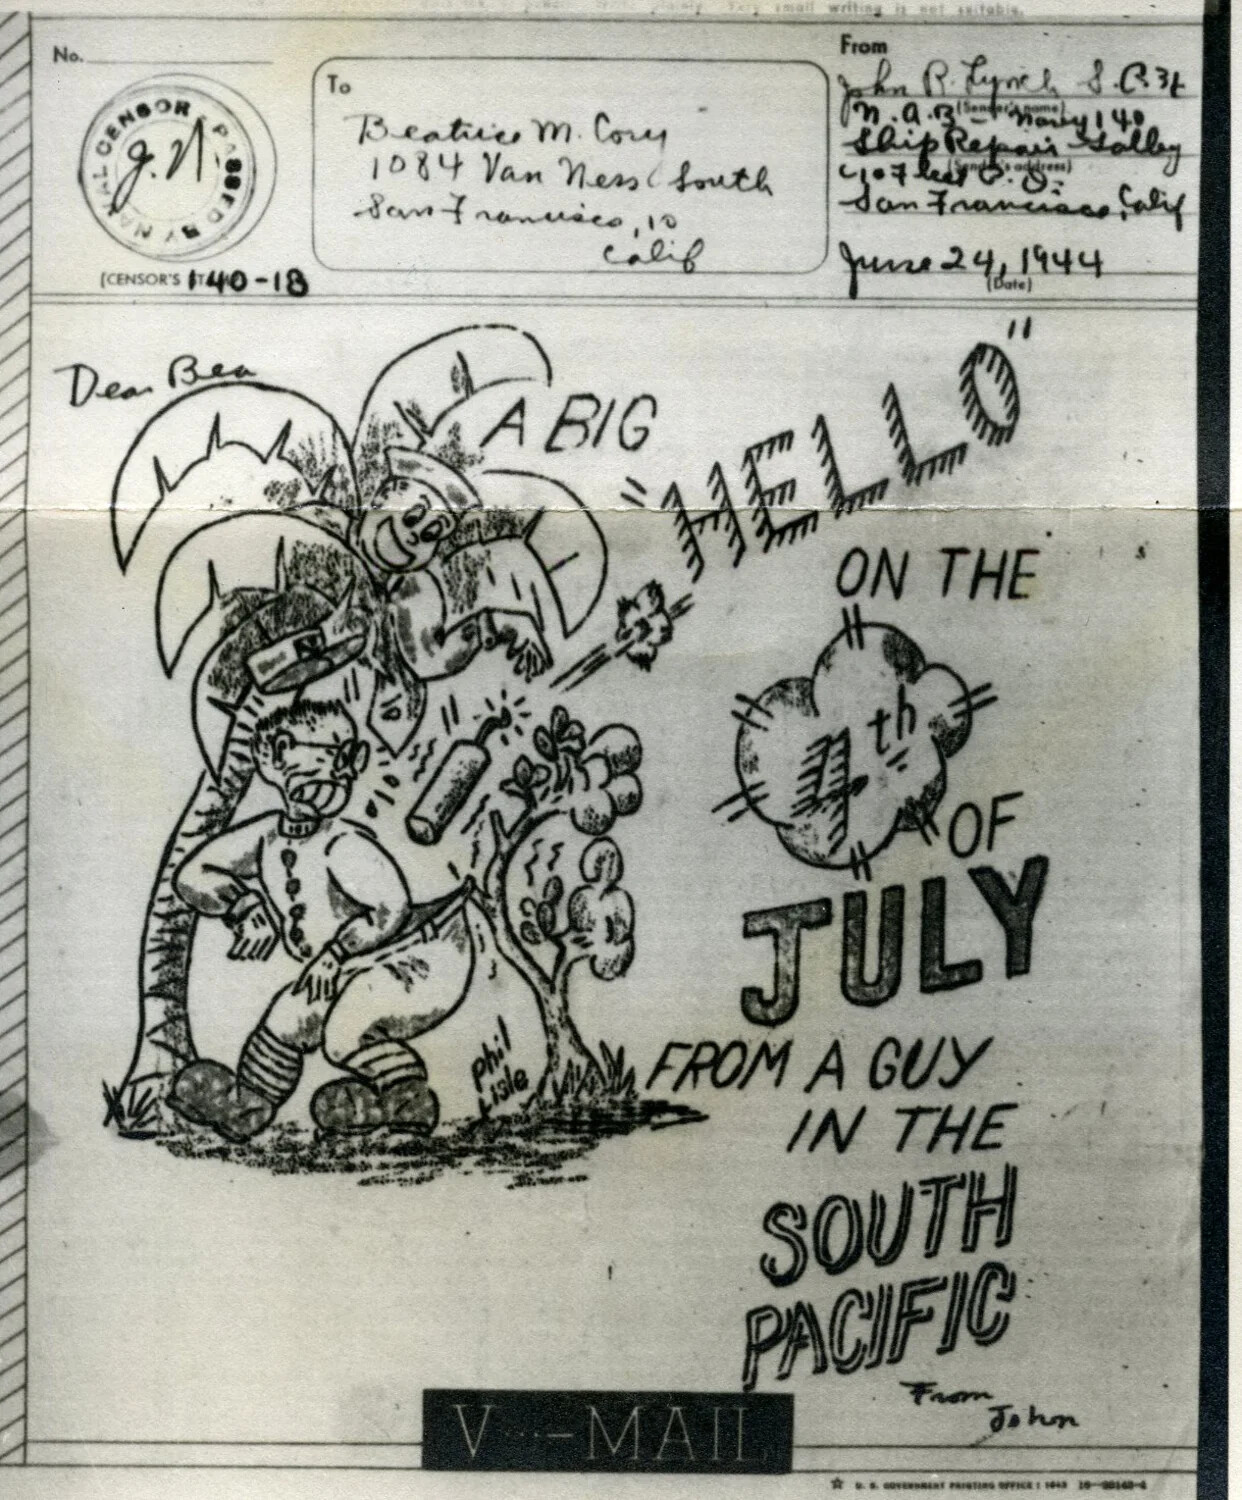 small writing is not suitable.
No.
NAVAL CENSOR
PASSED BY
J. N.
(CENSOR'S
140-18
To
Beatrice M. Cory
1084 Van Ness South
San Francisco, 10
Calif
From
John R. Lynch S.C. 3/c
(Sender's name)
N.A.B - Navy 140
Ship Repair - Galley
(Sender's address)
c/o Fleet P.O.
San Francisco, Calif
June 24, 1944
(Date)
Dear Bea
A BIG
"HELLO"
ON THE
4th
OF
JULY
FROM A GUY
IN THE
SOUTH
PACIFIC
Phil
Lisle
From
John
V···–MAIL
U. S. GOVERNMENT PRINTING OFFICE : 1943